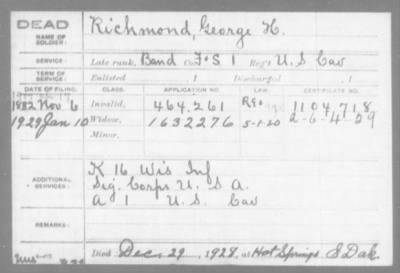 DEAD
NAME OF SOLDIER: Richmond, George H.
SERVICE: Late rank, Band Co. F&S 1 Reg't U.S Cav
TERM OF SERVICE: Enlisted , 1 Discharged , 1
DATE OF FILING. CLASS. APPLICATION NO. LAW. CERTIFICATE NO.
1882 Nov 6 Invalid, 464.261 1104.718
1929 Jan 10 Widow, 1632276 5-1-20 2-6-4-29
Minor,
K 16 Wis Inf
ADDITIONAL SERVICES: Sig. Corps U. S. A.
A 1 U. S. Cav
REMARKS:
Died Dec. 29, 1928, at Hot Springs S Dak.